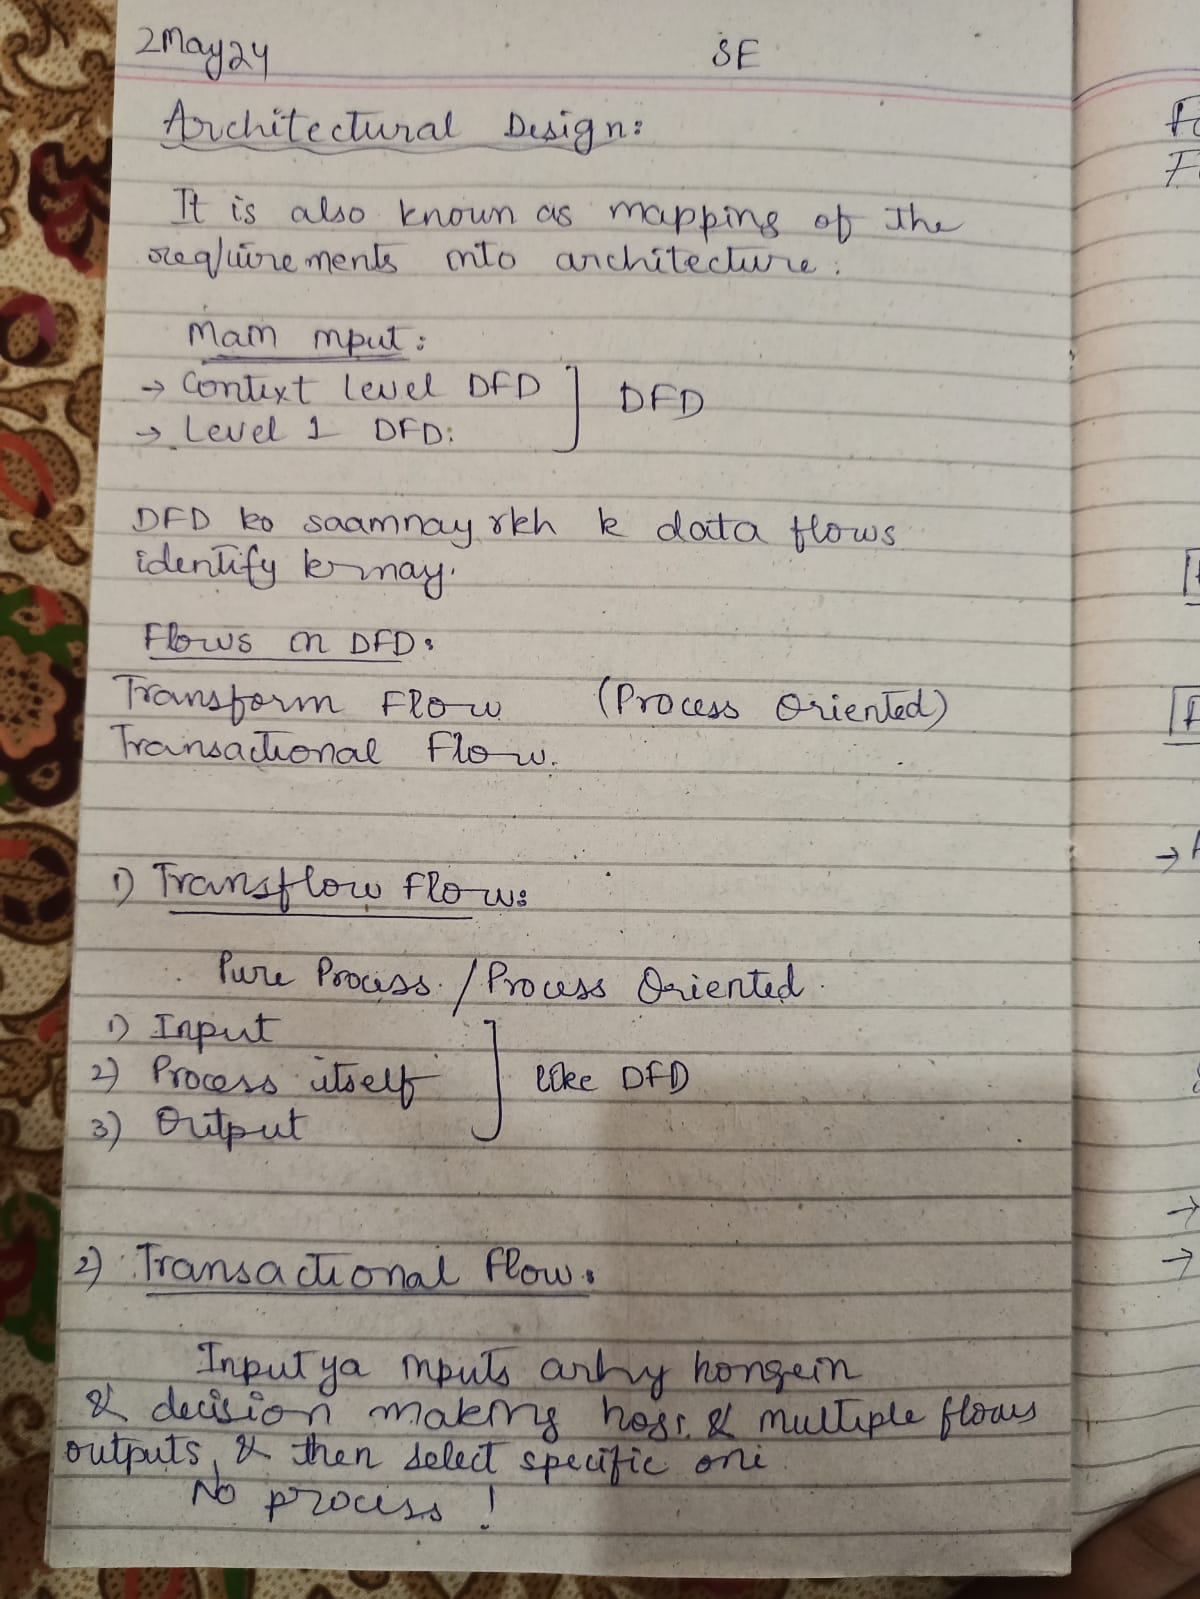 2May24
SE
Architectural Design:
It is also known as mapping of the
requirements into architecture.
Main input:
→ Context level DFD
→ Level 1 DFD.
DFD
DFD ko saamnay rkh k data flows
identify krnay.
Flows in DFD:
Transform Flow (Process Oriented)
Transactional Flow.
1) Transflow Flow:
Pure Process. / Process Oriented.
1) Input
2) Process itself
3) Output
like DFD
2) Transactional Flow.
Input ya inputs arhy hongein
& decision making & multiple flows
outputs, & then select specific one.
No process !